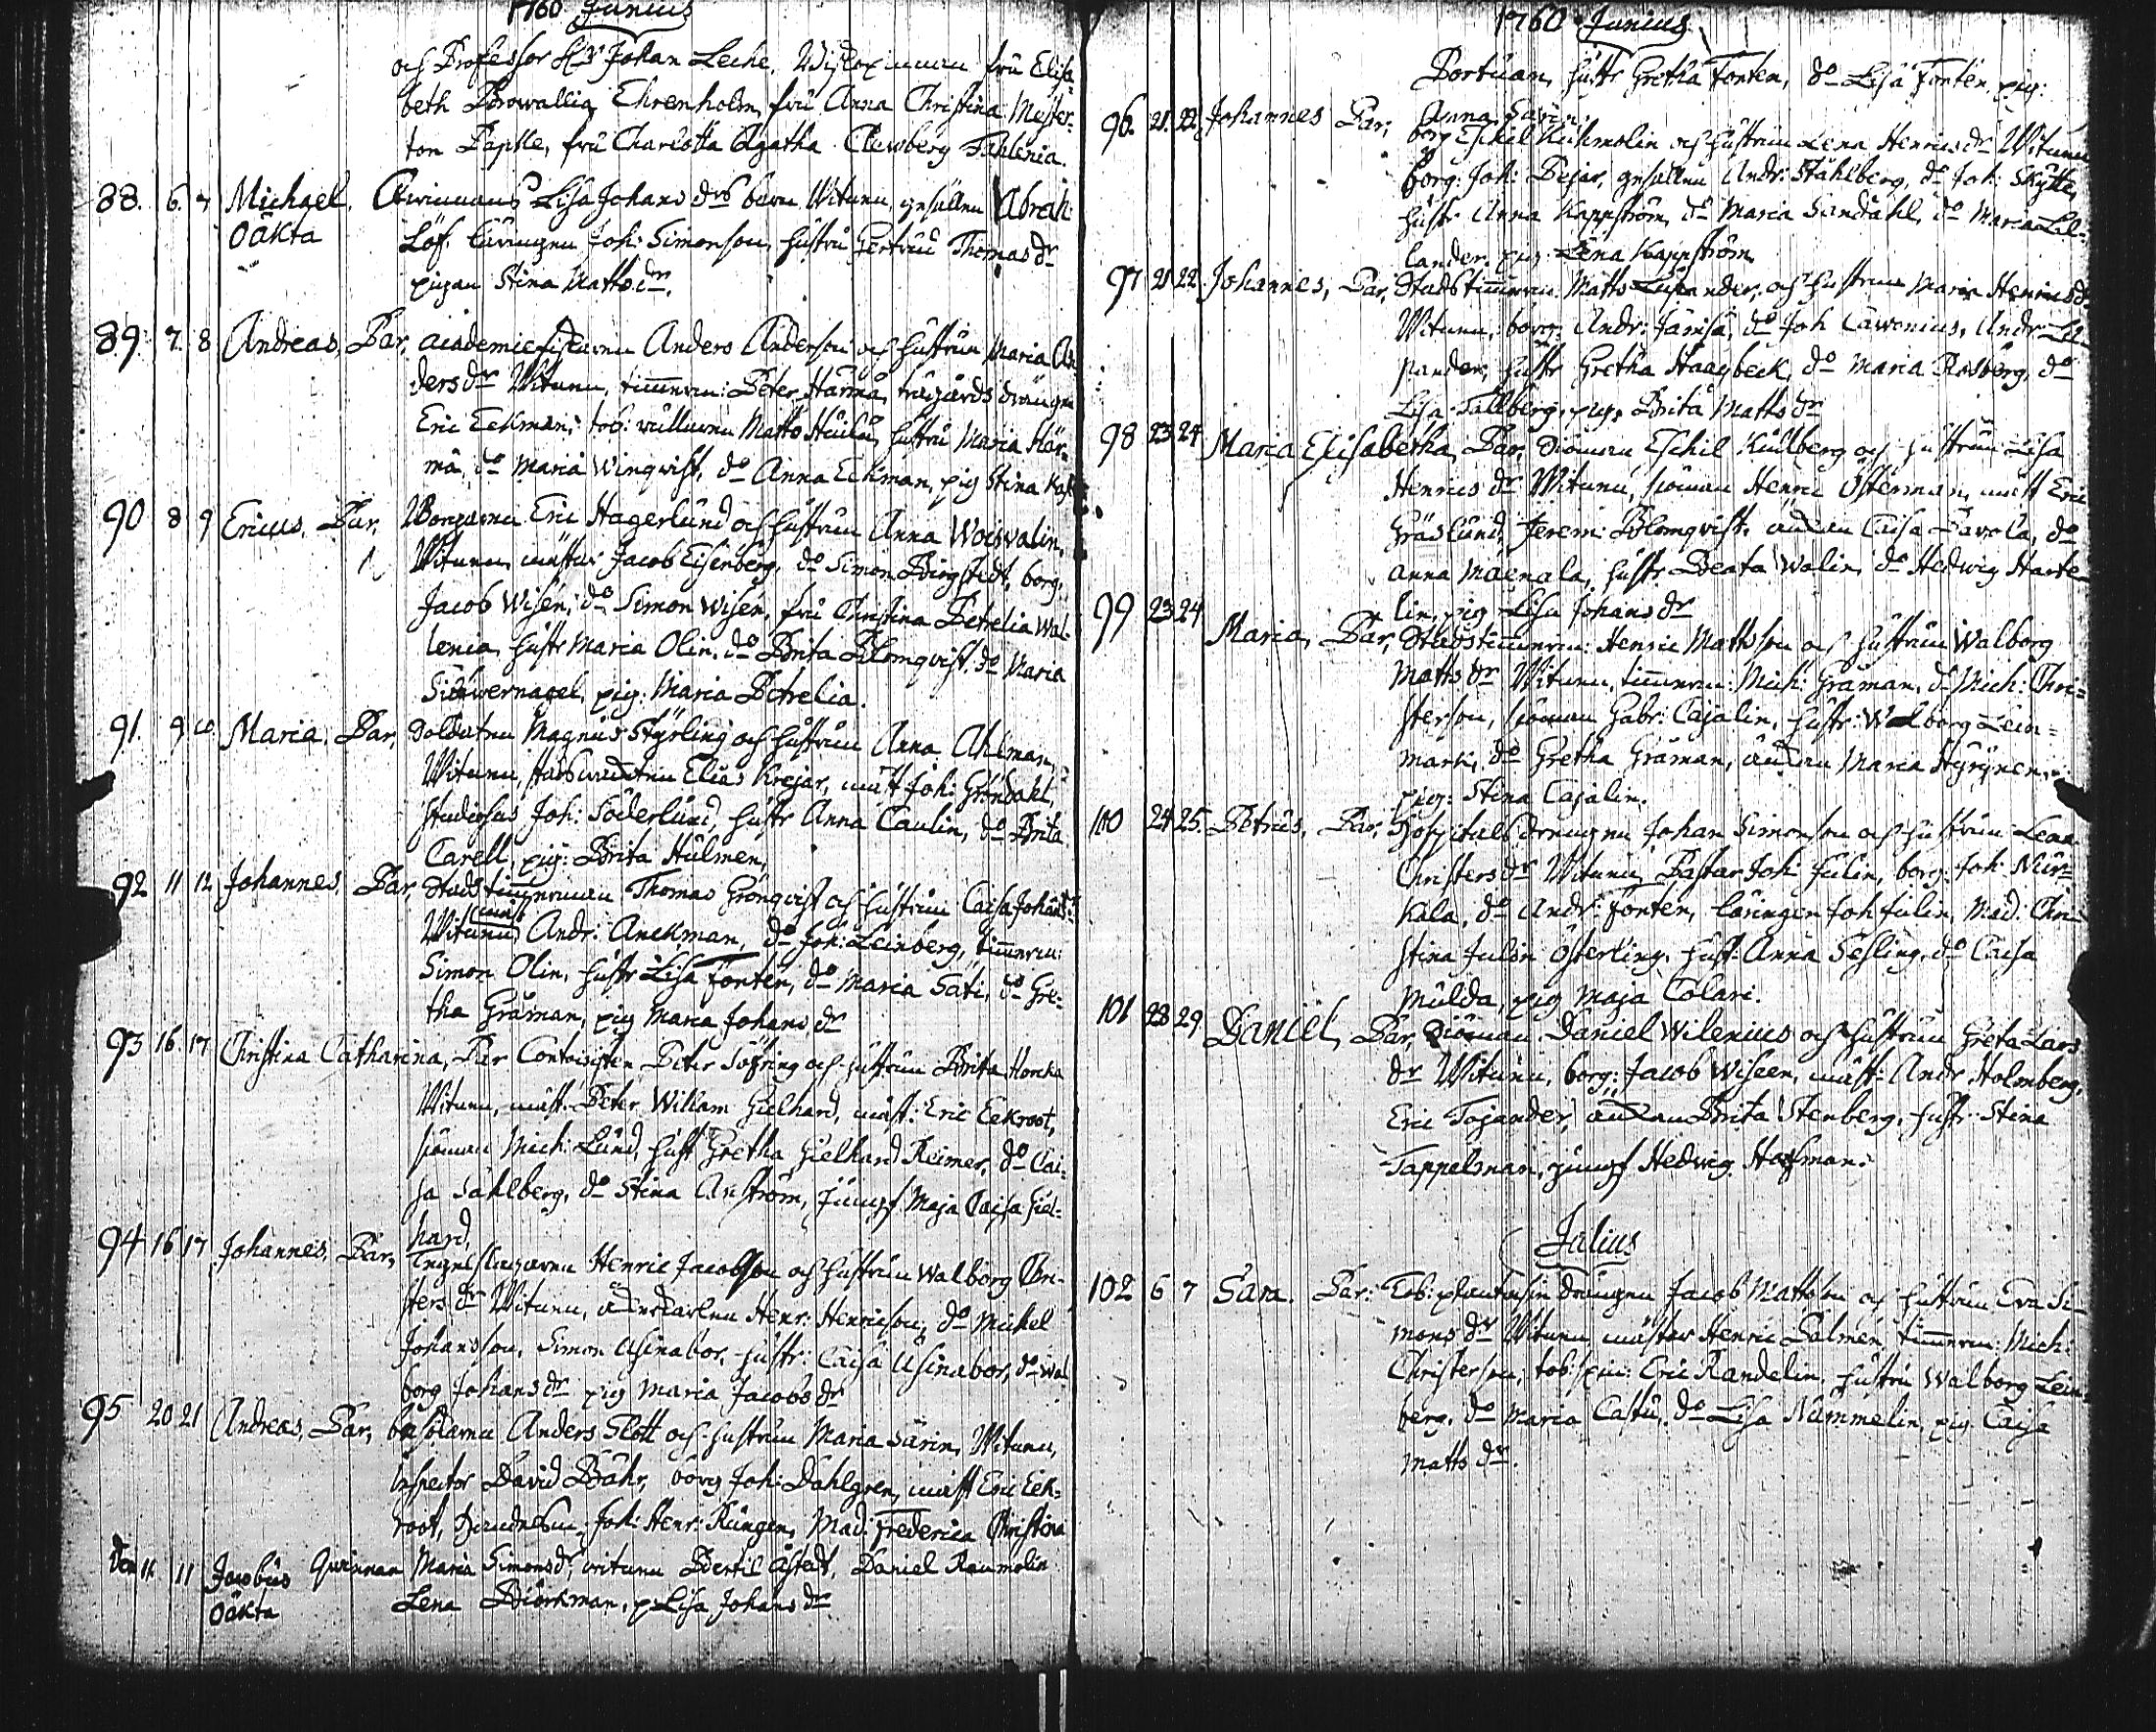 1760 Junius
och Professor Hr Johan Leche, fru Elisa-
beth Browallia Ehrenholm, fru Anna Christina Mester-
ton Paple, fru Charlotta Agatha Clewberg Fahlenia.
88. 6. 7 Michael, Qwinnans Lisa Johans drs barn Witnen, gesällen Abrah:
Oäkta Löf, läringen Joh: Simonson, hustru Gertrud Thomas dr
pigan Stina Matts dr.
89. 7. 8 Andreas, Par, academiefiscaren Anders Anderson och hustrun Maria An-
ders dr Witnen, timmerm: Peter Härmä, trägårds drängen
Eric Eckman, tob: Matts hustru Maria Här-
mä, do Maria Winqvist, do Anna Eckman, pig Stina
90 8 9 Ericus, Par, Borgaren Eric Hagerlund och hustrun Anna Woivalin,
Witnen, mästar Jacob Eisenberg, do Simon Bergstedt, borg:
Jacob Wisén, do Simon Wisén, fru Christina Petrelia Wal-
lenia, hustr Maria Olin, do Brita Blomqvist, do Maria
pig: Maria Petrelia.
91. 9 10 Maria, Par, Soldaten Magnus Styrling och hustrun Anna Ahlman,
Witnen, Elias Krejar, mäst Joh: Gröndahl,
studiosus Joh: Söderlund, hustr Anna Caulin, do Brita
Carell, pig: Brita Hulmén,
92 11 12 Johannes, Par, Stads timmerman Thomas Grönqvist och hustrun Caisa Johans dr
Witnen, Andr: Anckman, do Joh: Leinberg, timmerm:
Simon Olin, hustr Lisa Fontén, do Maria Säti, do Gre-
tha Gråman, pig Maria Johans dr
93 16. 17 Christina Catharina, Par Peter Söfring och hustrun Brita
Witnen, mäst: Peter Willam Gielhard, mäst: Eric Eekroot,
sjöman Mich: Lund, hust Gretha Gielhard Reimer, do Cai-
sa Sahlberg, do Stina Anström, Jungf Maja Caisa Giel-
hard.
94 16 17 Johannes, Par, Tegelslagaren Henric Jacobson och hustrun Walborg Chri-
sters dr Witnen, Henr: Henricson, do Mickel
Johansson, Simon Usinabor, hustr: Caisa Usinabor, do Wal
borg Johans dr pig Maria Jacobs dr
95 20 21 Andreas, Par, Anders Slott och hustrun Maria Särin, Witnen,
Inspector David Bähr, borg Joh: Dahlgren, mäst Eric Eek-
root, Joh: Henr: Rungen, Mad: Frederica Christina
den 11. 11 Jacobus Qwinnan Maria Simons dr, witnen Bertil Åstedt, Daniel Raumolin
Oäkta Lena Biörkman, p Lisa Johans dr
1760 Junius
Portuan, hustr Gretha Fontén, do Lisa Fontén, pig:
Anna Savén.
96. 21. 22. Johannes Par, borg Eskil Kuhmolin och hustrun Lena Henrics dr Witnen
borg: Joh: Pejar, gesällen Andr: Ståhlberg, do Joh: Skytte,
hustr Anna Kappström, do Maria Sandahl, do Maria Lil-
lander, pig: Lena Kappström
97 21 22 Johannes, Par, Stads timmerm: Matts Lupander, och hustrun Maria Henricsdr
Witnen, borg: Andr: Jämsä, do Joh Cawonius, Andr: Lu-
pander, hustr Gretha Haagbeck, do Maria Rosberg, do
Lisa Tallberg, pig: Brita Matts dr
98 23 24 Maria Elisabetha, Par, Siöman Eschil Kullberg och hustrun Lisa
Henrics dr Witnen, siöman Henric Österman, mäst Eric
Gräslund, Jerem: Blomqvist, änkan Caisa Pavola, do
Anna Maenala, hustr Beata Wolin, do Hedwig Harte-
lin, pig Lisa Johans dr
99 23 24 Maria, Par, Stadstimmerm: Henric Mattsson och hustrun Walborg
Matts dr Witnen, timmerm: Mich: Gråman, do Mich: Chri-
sterson, siöman Gabr: Cajalin, hustr: Walborg Lein-
mark, do Gretha Gråman, änkan Maria Hyrynen,
pig: Stina Cajalin.
100 24 25. Petrus, Par, Hospitalsdrengen Johan Simonson och hustrun Lena
Christers dr Witnen, Pastor Joh: Julin, borg: Joh: Nur-
kala, do Andr: Fontén, läringen Joh Julin, Mad: Chri-
stina Julin Österling, hust: Anna Sesling, do Caisa
Mulda, pig Maja Colari.
101 28 29 Daniel, Par, Siöman Daniel Wilenius och hustrun Greta Lars
dr Witnen, borg: Jacob Wiseen, mäst: Andr Holmberg,
Eric Tojander, änkan Brita Stenberg, hustr: Stina
Tappelman, jungf Hedwig Hofman.
Julius
102 6 7 Sara. Par: Tob: drängen Jacob Mattsson och hustrun Eva Si-
mons dr Witnen mästar Henric Palmén, timmerm: Mich:
Christerson, tob: Eric Randelin, hustru Walborg Lein-
berg, do Maria Castu, do Lisa Nummelin, pig Caisa
Matts dr.